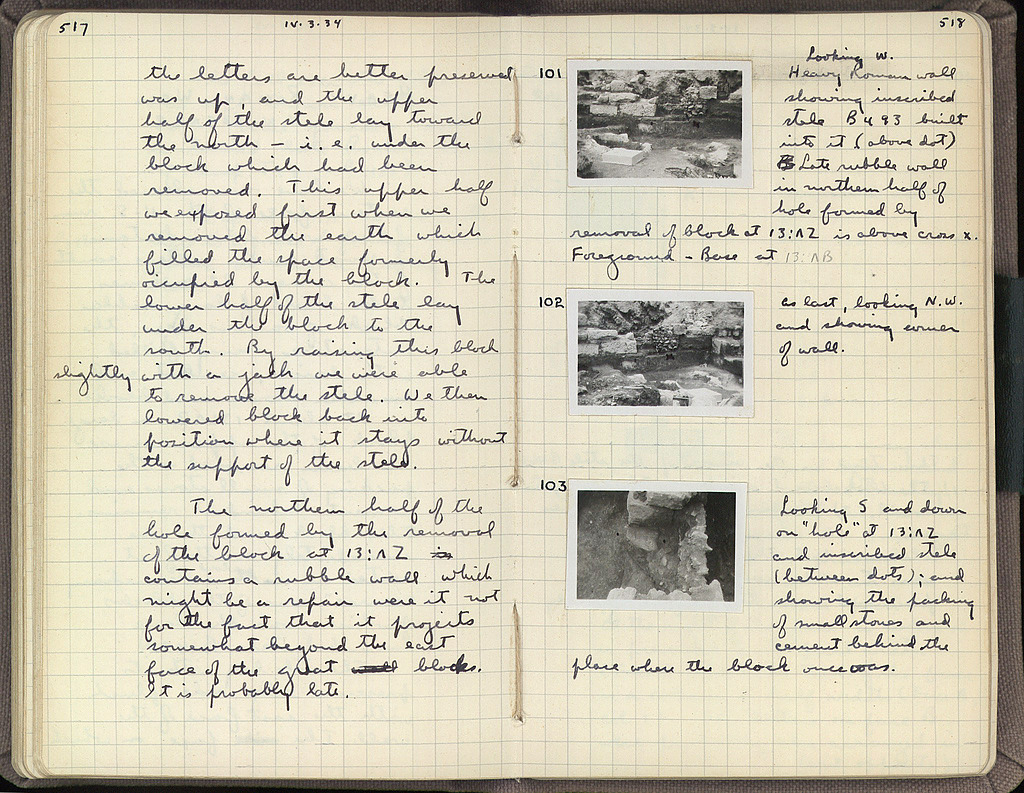 517
IV.3.34
the letters are better preserved
was up, and the upper
half of the stele lay toward
the north – i.e. under the
block which had been
removed. This upper half
we exposed first when we
removed the earth which
filled the space formerly
occupied by the block. The
lower half of the stele lay
under the block to the
south. By raising this block
slightly with a jack we were able
to remove the stele. We then
lowered block back into
position where it stays without
the support of the stele.
The northern half of the
hole formed by the removal
of the block at 13:ΛZ is
contains a rubble wall which
might be a repair were it not
for the fact that it projects
somewhat beyond the east
face of the great wall blocks.
It is probably late.
518
101
Looking W.
Heavy Roman wall
showing inscribed
stele B 493 built
into it (above dot)
Late rubble wall
in northern half of
hole formed by
removal of block at 13:ΛZ is above cross x.
Foreground – Base at 13:ΛB
102
as last, looking N.W.
and showing corner
of wall.
103
Looking S and down
on "hole" at 13:ΛZ
and inscribed stele
(between dots); and
showing the packing
of small stones and
cement behind the
place where the block once was.